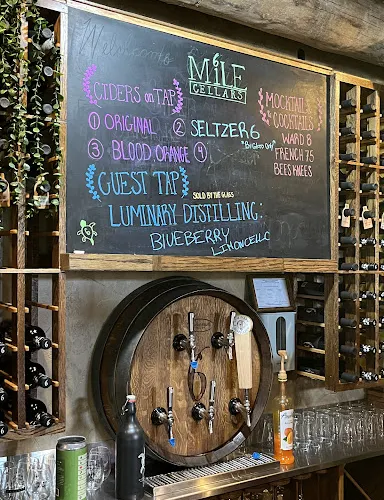 MiLF
CELLARS
CIDERS on TAP
① ORIGINAL
② SELTZER6
③ BLOOD ORANGE
④
GUEST TAP
SOLD BY THE GLASS
LUMINARY DISTILLING:
BLUEBERRY
LIMONCELLO
MOCKTAILS
COCKTAILS
WARD 8
FRENCH 75
BEES KNEES